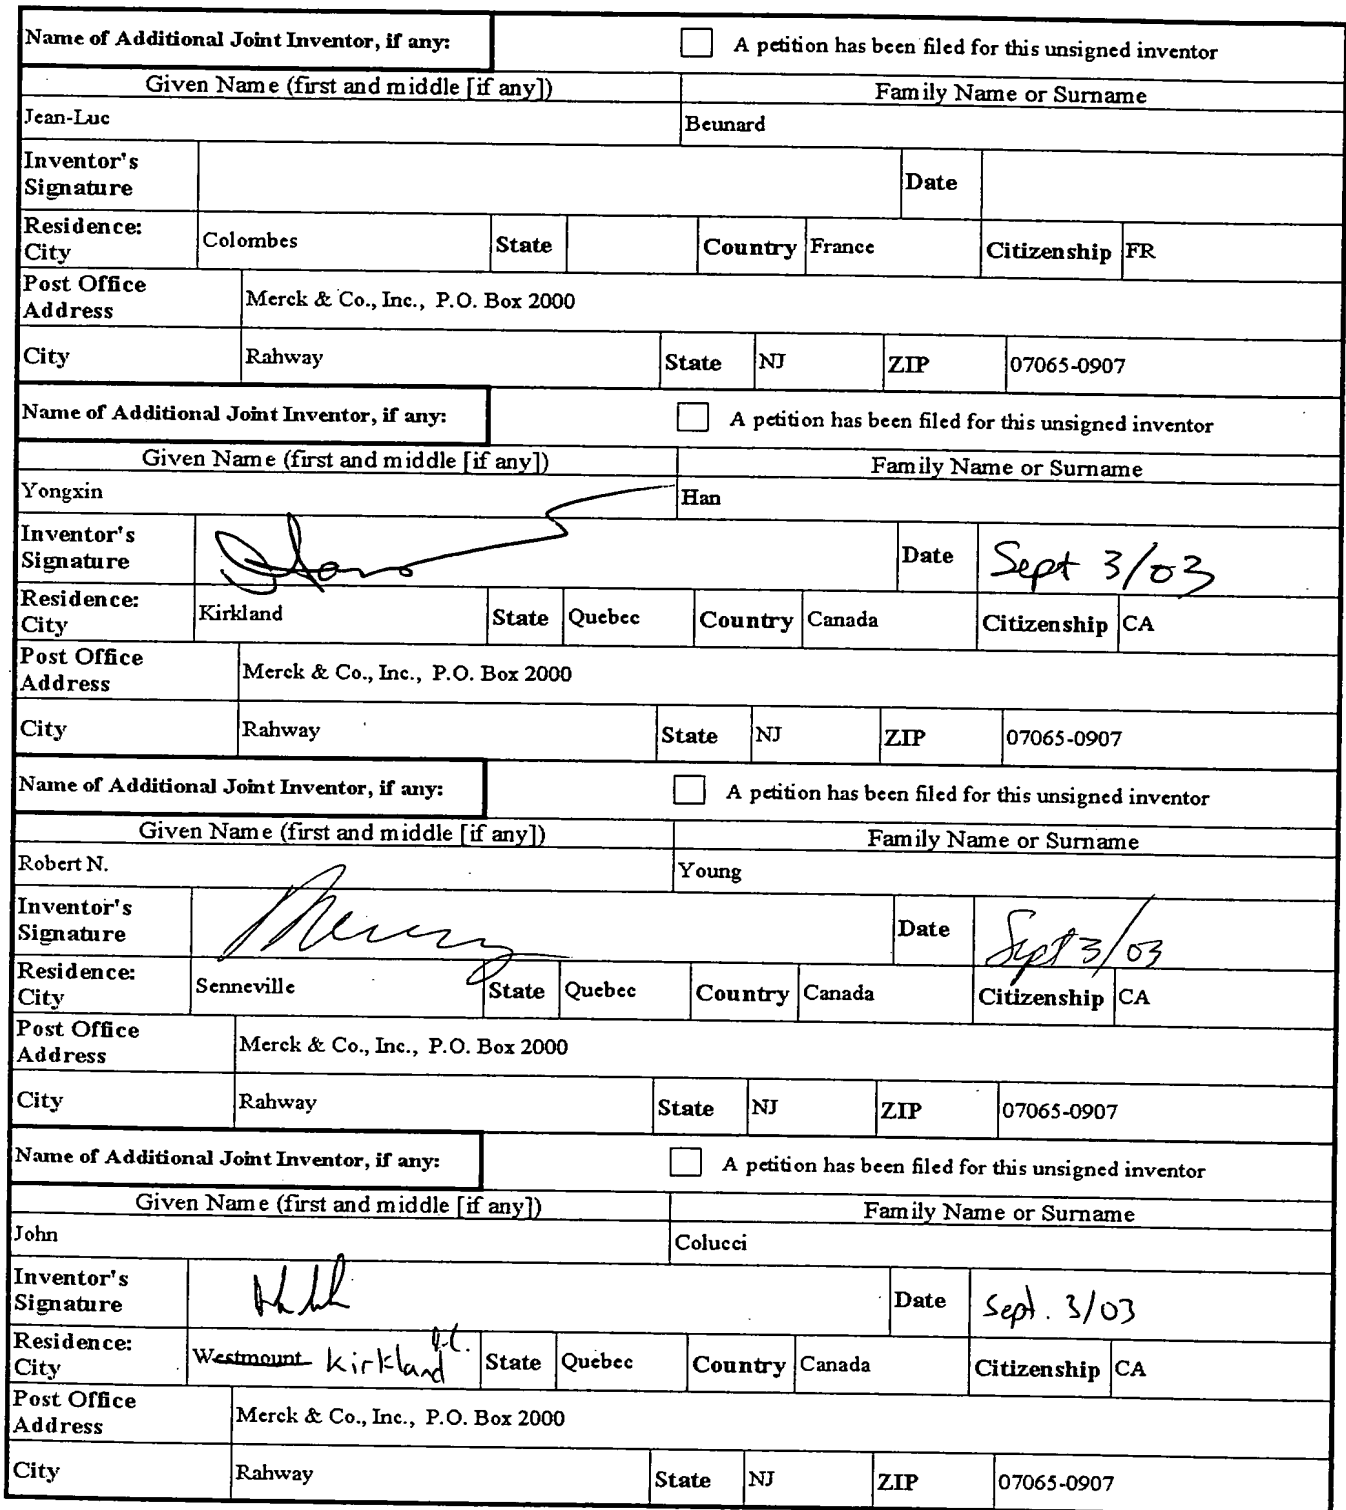 Name of Additional Joint Inventor, if any: A petition has been filed for this unsigned inventor
Given Name (first and middle [if any]) Family Name or Surname
Jean-Luc Beunard
Inventor's Signature Date
Residence: City Colombes State Country France Citizenship FR
Post Office Address Merck & Co., Inc., P.O. Box 2000
City Rahway State NJ ZIP 07065-0907
Name of Additional Joint Inventor, if any: A petition has been filed for this unsigned inventor
Given Name (first and middle [if any]) Family Name or Surname
Yongxin Han
Inventor's Signature Date Sept 3/03
Residence: City Kirkland State Quebec Country Canada Citizenship CA
Post Office Address Merck & Co., Inc., P.O. Box 2000
City Rahway State NJ ZIP 07065-0907
Name of Additional Joint Inventor, if any: A petition has been filed for this unsigned inventor
Given Name (first and middle [if any]) Family Name or Surname
Robert N. Young
Inventor's Signature Date Sept 3/03
Residence: City Senneville State Quebec Country Canada Citizenship CA
Post Office Address Merck & Co., Inc., P.O. Box 2000
City Rahway State NJ ZIP 07065-0907
Name of Additional Joint Inventor, if any: A petition has been filed for this unsigned inventor
Given Name (first and middle [if any]) Family Name or Surname
John Colucci
Inventor's Signature Date Sept. 3/03
Residence: City Westmount Kirkland State Quebec Country Canada Citizenship CA
Post Office Address Merck & Co., Inc., P.O. Box 2000
City Rahway State NJ ZIP 07065-0907